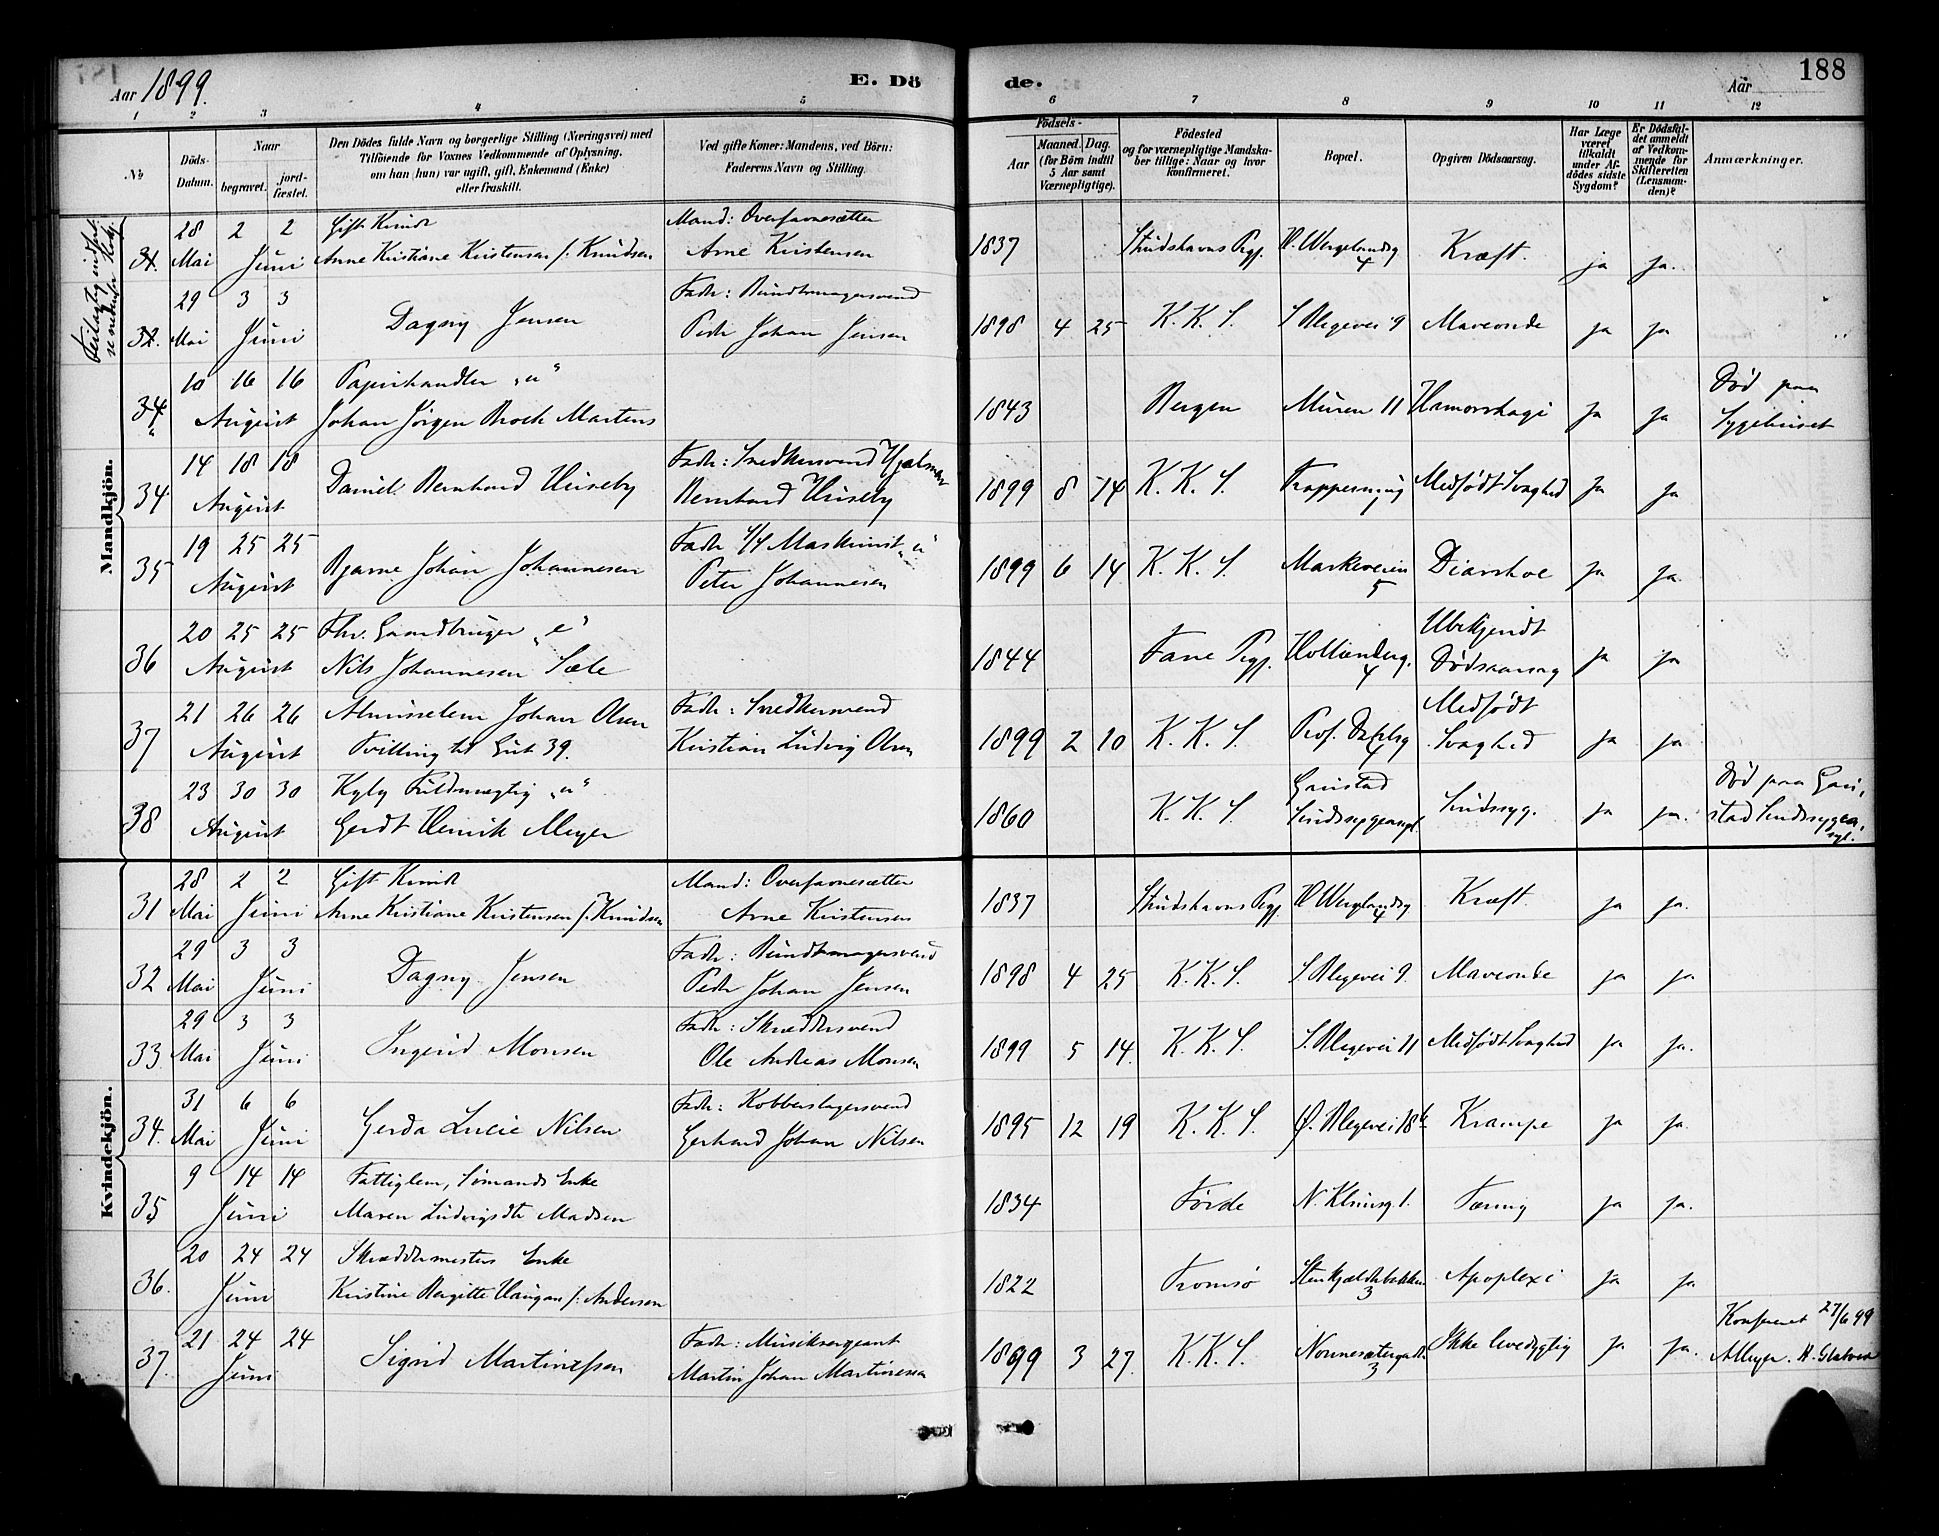 Aar 1899. E. Dö de. Aar 188
1 2 3 4 5 6 7 8 9 10 11 12
No
Döds-Datum.
Naar
begravet.
jord-fæstet.
Den Dödes fulde Navn og borgerlige Stilling (Næringsvei) med
Tilföiende for Voxnes Vedkommende af Oplysning,
om han (hun) var ugift, gift, Enkemand (Enke)
eller fraskilt.
Ved gifte Koner: Mandens, ved Börn:
Faderens Navn og Stilling.
Födsels-
Aar
Maaned. Dag.
(for Börn indtil
5 Aar samt
Værnepligtige).
Födested
og for værnepligtige Mandska-
ber tillige: Naar og hvor
konfirmeret.
Bopæl.
Opgiven Dödsaarsag.
Har Læge
været
tilkaldt
under Af-
dödes sidste
Sygdom?
Er Dödsfal-
det anmeldt
af Vedkom-
mende for
Skifteretten
(Lensman-
den)?
Anmærkninger.
Mandkjön.
28 2 2 Gift Kvinde Mand: Overfarvesætter
31. Mai Juni Anne Kristiane Kristensen f. Knudsen Arne Kristensen 1837 H. Wergelandsg 4 Kræft. ja ja.
29 3 3 Fader: Bundtmagersvend
32. Mai Juni Dagny Jensen Peder Johan Jensen 1898 4 25 K. K. S. 9 ja ja
10 16 16 Papirhandler "u" Død paa
34 August Johan Jörgen Brock Martens 1843 Bergen Muren 11 ja ja Sygehuset
14 18 18 Fader: Snedkersvend Hjalmar
34. August Daniel Bernhard Huseby Bernhard Huseby 1899 8 14 K. K. S. Medfødt Svaghed ja ja
19 25 25 Fader Maskinist "u"
35 August Bjarne Johan Johannesen Peter Johannesen 1899 6 14 K. K. S. Markeveien 5 Diarrhoe ja ja.
20 25 25 Fhv. Gaardbruger "e" Ubekjendt
36 August Nils Johannesen Sæle 1844 Fane Pgj. Hollænderg. 4 Dødsaarsag ja ja
21 26 26 Johan Olsen Fader: Snedkersvend Medfødt
37 August Tvilling til Gut 39. Kristian Ludvig Olsen 1899 2 10 K. K. S. Prof. 4 Svaghed ja ja
23 30 30 Fuldmægtig "u" Gaustad Død paa Gau-
38 August Gerdt Henrik Meyer 1860 K. K. S. Sindssygeasyl. Sindssyg. ja ja. stad Sindssygea-
syl.
Kvindekjön.
28 2 2 Gift Kvinde Mand: Overfarvesætter
31 Mai Juni Anne Kristiane Kristensen f. Knudsen Arne Kristensen 1837 H. Wergelandsg 4 Kræft. ja ja.
29 3 3 Fader: Bundtmagersvend
32 Mai Juni Dagny Jensen Peder Johan Jensen 1898 4 25 K. K. S. 9. ja ja
29 3 3 Fader: Skræddersvend
33. Mai Juni Ingerid Monsen Ole Andreas Monsen 1899 5 14. K. K. S. 11 Medfødt Svaghed ja ja.
31 6 6 Fader: Kobberslagersvend
34. Mai Juni Gerda Lucie Nilsen Gerhard Johan Nilsen 1895 12 19 K. K. S. 18 b Krampe ja ja.
9 14 14 Fattiglem, Sømands Enke
35 Juni Maren Ludvigsdtr Madsen 1834 Førde Tæring ja ja.
20 24 24 Skræddermesters Enke
36. Juni Kristine Bergitte Haugan f. Andersen 1822 Tromsø 3 Apoplexi ja ja
21 24 24 Fader: Musiksergeant Konfereret 27/6 99
37. Juni Sigrid Martinussen Martin Johan Martinussen 1899 3 27. K. K. S. 3 Ikke levedygtig ja ja. AMeyer.